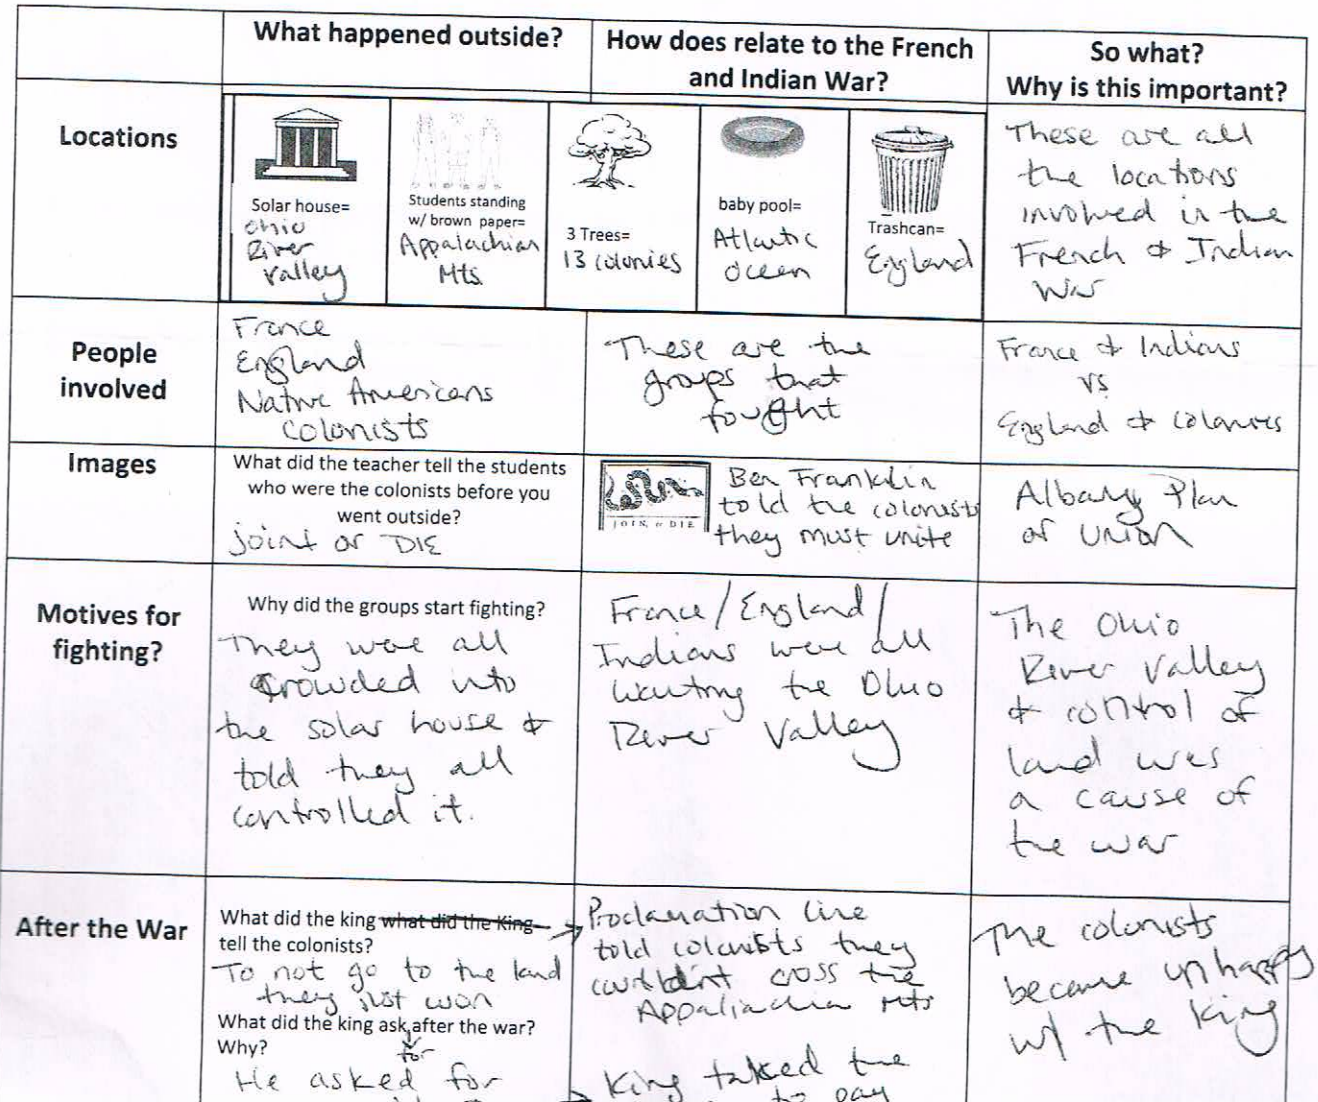 What happened outside?
How does relate to the French
and Indian War?
So what?
Why is this important?
Locations
Solar house=
Ohio
River
Valley
Students standing
w/ brown paper=
Appalachian
Mts.
3 Trees=
13 colonies
baby pool=
Atlantic
Ocean
Trashcan=
England
These are all
the locations
involved in the
French & Indian
War
People
involved
France
England
Native Americans
Colonists
These are the
groups that
fought
France & Indians
vs
England & colonies
Images
What did the teacher tell the students
who were the colonists before you
went outside?
joint or DIE
JOIN, or DIE
Ben Franklin
told the colonists
they must unite
Albany Plan
of Union
Motives for
fighting?
Why did the groups start fighting?
They were all
crowded into
the solar house &
told they all
controlled it.
France/England/
Indians were all
wanting the Ohio
River Valley
The Ohio
River Valley
& control of
land was
a cause of
the war
After the War
What did the king what did the King
tell the colonists?
To not go to the land
they just won
What did the king ask after the war?
for
Why?
He asked for
Proclamation Line
told colonists they
couldn't cross the
Appaliachia Mts
King taxed the
to pay
The colonists
became unhappy
w/ the King